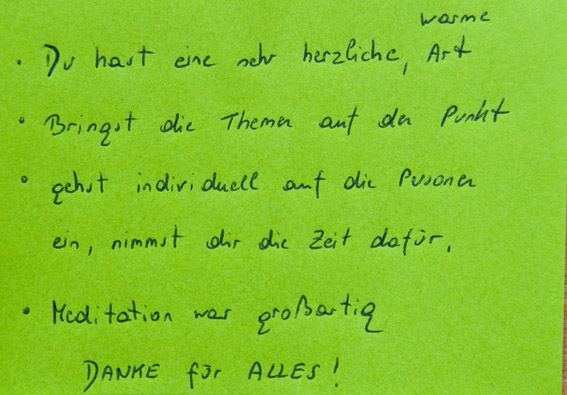 warme
• Du hast eine sehr herzliche, Art
• Bringst die Themen auf den Punkt
• gehst individuell auf die Personen
ein, nimmst dir die Zeit dafür.
• Meditation war großartig
DANKE für ALLES!